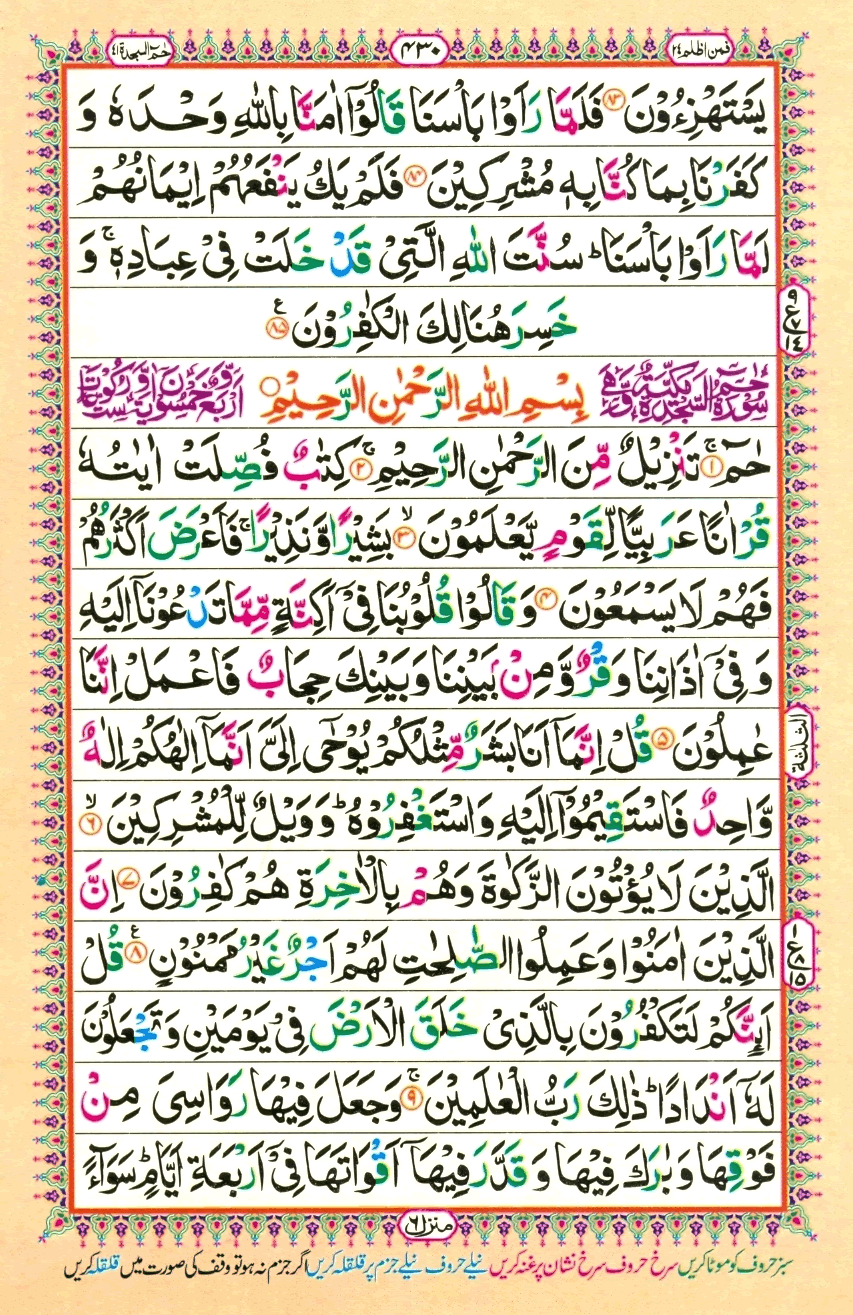 فمن اظلم ٢٤ ٤٣٠ حٰمٓ السجدة ٤١
يَسْتَهْزِءُوْنَ ﴿٨٣﴾ فَلَمَّا رَاَوْا بَاْسَنَا قَالُوْٓا اٰمَنَّا بِاللّٰهِ وَحْدَهٗ وَ
كَفَرْنَا بِمَا كُنَّا بِهٖ مُشْرِكِيْنَ ﴿٨٤﴾ فَلَمْ يَكُ يَنْفَعُهُمْ اِيْمَانُهُمْ
لَمَّا رَاَوْا بَاْسَنَا ؕ سُنَّتَ اللّٰهِ الَّتِيْ قَدْ خَلَتْ فِيْ عِبَادِهٖ ۚ وَ
خَسِرَ هُنَالِكَ الْكٰفِرُوْنَ ﴿٨٥﴾ ع
٩ ع ١٤
سُوْرَةُ حٰمٓ السَّجْدَةِ مَكِّيَّةٌ وَّهِيَ بِسْمِ اللّٰهِ الرَّحْمٰنِ الرَّحِيْمِ اَرْبَعٌ وَّخَمْسُوْنَ اٰيَةً وَّسِتُّ رُكُوْعَاتٍ
حٰمٓ ۚ ﴿١﴾ تَنْزِيْلٌ مِّنَ الرَّحْمٰنِ الرَّحِيْمِ ۚ ﴿٢﴾ كِتٰبٌ فُصِّلَتْ اٰيٰتُهٗ
قُرْاٰنًا عَرَبِيًّا لِّقَوْمٍ يَّعْلَمُوْنَ ۙ ﴿٣﴾ بَشِيْرًا وَّنَذِيْرًا ۚ فَاَعْرَضَ اَكْثَرُهُمْ
فَهُمْ لَا يَسْمَعُوْنَ ﴿٤﴾ وَقَالُوْا قُلُوْبُنَا فِيْٓ اَكِنَّةٍ مِّمَّا تَدْعُوْنَآ اِلَيْهِ
وَفِيْٓ اٰذَانِنَا وَقْرٌ وَّمِنْۢ بَيْنِنَا وَبَيْنِكَ حِجَابٌ فَاعْمَلْ اِنَّنَا
عٰمِلُوْنَ ﴿٥﴾ قُلْ اِنَّمَآ اَنَا بَشَرٌ مِّثْلُكُمْ يُوْحٰٓى اِلَيَّ اَنَّمَآ اِلٰهُكُمْ اِلٰهٌ
الثلثة
وَّاحِدٌ فَاسْتَقِيْمُوْٓا اِلَيْهِ وَاسْتَغْفِرُوْهُ ؕ وَوَيْلٌ لِّلْمُشْرِكِيْنَ ۙ ﴿٦﴾
الَّذِيْنَ لَا يُؤْتُوْنَ الزَّكٰوةَ وَهُمْ بِالْاٰخِرَةِ هُمْ كٰفِرُوْنَ ﴿٧﴾ اِنَّ
الَّذِيْنَ اٰمَنُوْا وَعَمِلُوا الصّٰلِحٰتِ لَهُمْ اَجْرٌ غَيْرُ مَمْنُوْنٍ ﴿٨﴾ ع قُلْ
١ ع ٨ ١٥
اَىِٕنَّكُمْ لَتَكْفُرُوْنَ بِالَّذِيْ خَلَقَ الْاَرْضَ فِيْ يَوْمَيْنِ وَتَجْعَلُوْنَ
لَهٗٓ اَنْدَادًا ؕ ذٰلِكَ رَبُّ الْعٰلَمِيْنَ ۚ ﴿٩﴾ وَجَعَلَ فِيْهَا رَوَاسِيَ مِنْ
فَوْقِهَا وَبٰرَكَ فِيْهَا وَقَدَّرَ فِيْهَآ اَقْوَاتَهَا فِيْٓ اَرْبَعَةِ اَيَّامٍ ؕ سَوَآءً
منزل ٦
سبز حروف کو موٹا کریں سرخ حروف سرخ نشان پر غنہ کریں نیلے حروف نیلے جزم پر قلقلہ کریں اگر جزم نہ ہو تو وقف کی صورت میں قلقلہ کریں